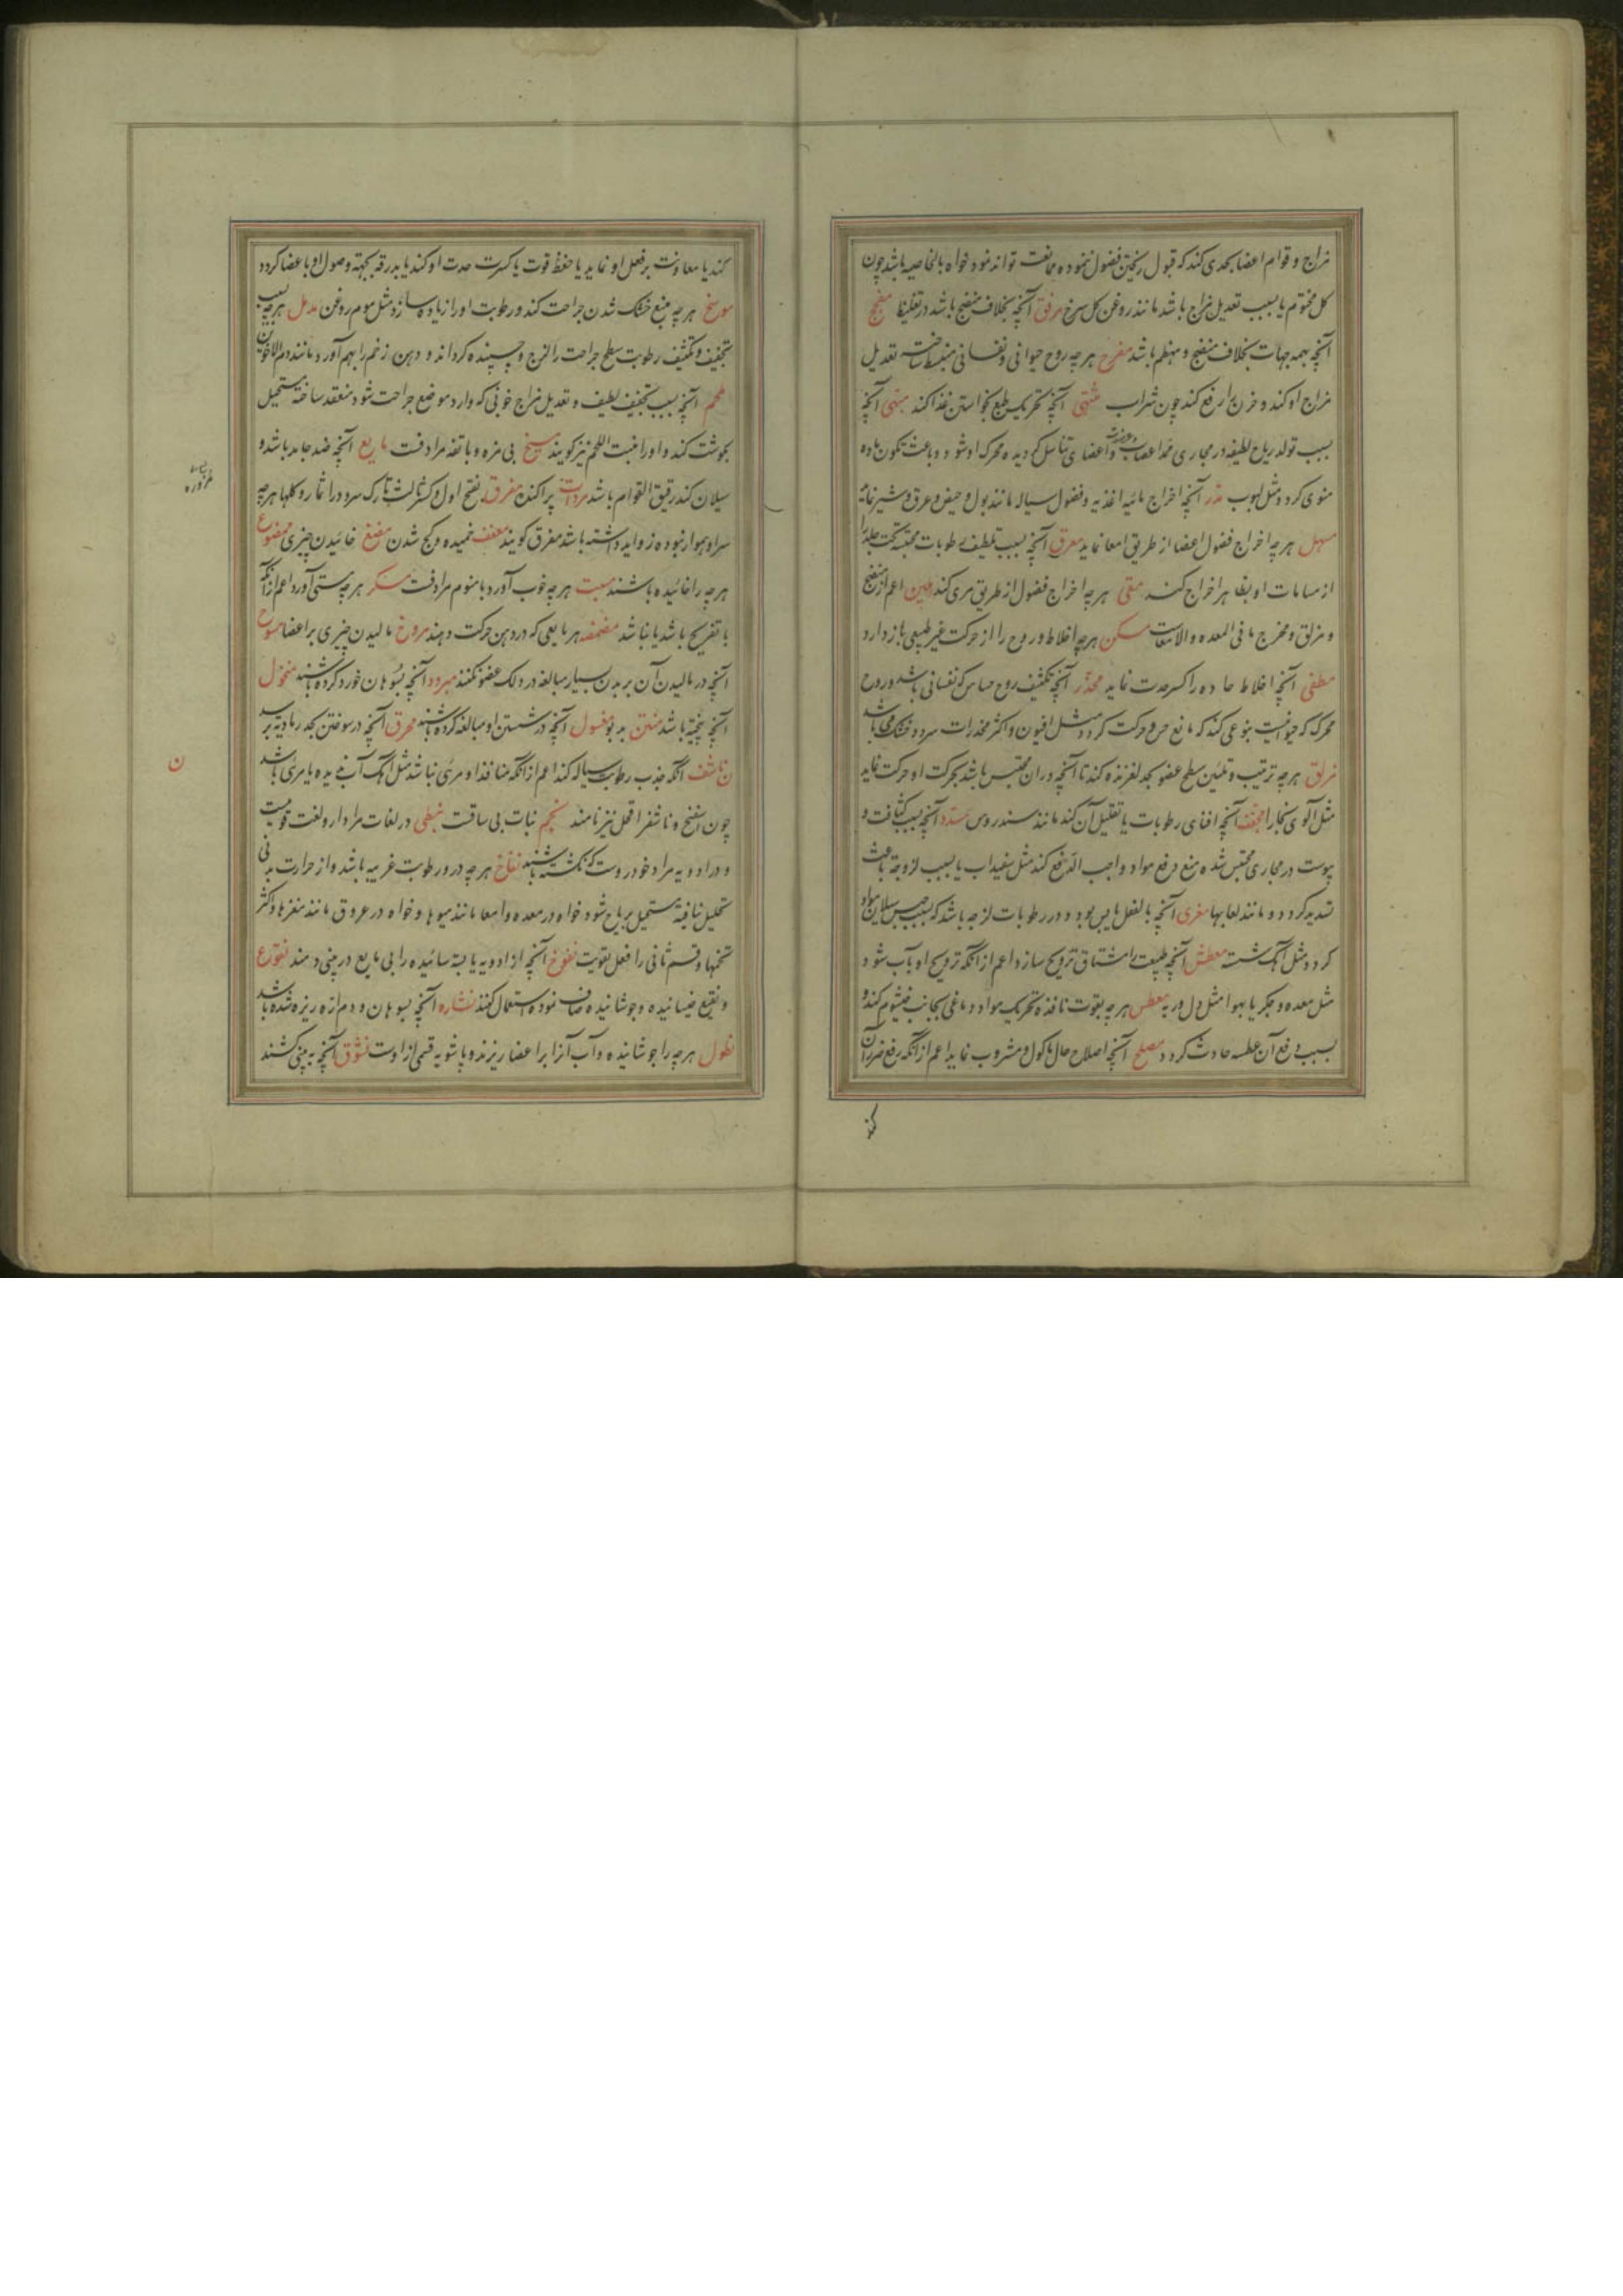 مزاج و قوام اعضا بحدی کند که قبول ریختن فضول ننموده ممانعت تواند نمود خواه بالخاصیه باشد چون
کل مختوم یا بسبب تعدیل مزاج باشد مانند روغن کل سرخ آنچه بخلاف منضج باشد در تغلیظ مفجج
آنچه بهمه جهات بخلاف منضج و مهضم باشد مفرح هر چه روح حیوانی و نفسانی منبسط ساخته تعدیل
مزاج او کند و حزن را رفع کند چون شراب مشتهی آنچه تحریک طبع بخواستن غذا کند مبهی آنچه
بسبب تولد ریاح لطیفه در مجاری مدد اعصاب و اعضای تناسل کردیده محرک او شود و باعث تکون ماده
منوی کردد مثل لبوب مدر آنچه اخراج مائیه اغذیه و فضول سیاله مانند بول و حیض و عرق و شیر نماید
مسهل هر چه اخراج فضول اعضا از طریق امعا نماید معرق آنچه بسبب تلطیف رطوبات محتبسه تحت جلد را
از مسامات او بظاهر اخراج کند مقی هر چه اخراج فضول از طریق مری کند ملین اعم از منضج
و مزلق و مخرج ما فی المعده والامعاست مسکن هر چه اخلاط و روح را از حرکت غیر طبیعی باز دارد
مطفی آنچه اخلاط حاده را کسر حدت نماید مخدر آنچه تکثیف روح حساس که نفسانی باشد و روح
محرک که حیوانیست بنوعی کند که مانع حس و حرکت کردد مثل افیون و اکثر مخدرات سرد و خشک می باشد
مزلق هر چه ترتیب و تلئین سطح عضو بحد لغزنده کند تا آنچه در ان محتبس باشد بحرکت او حرکت نماید
مثل آلوی بخارا مجفف آنچه افنای رطوبات یا تقلیل آن کند مانند سندروس مسدد آنچه بسبب کثافت و
یبوست در مجاری محتبس شده منع دفع مواد واجب الدفع کند مثل سفیداب یا بسبب لزوجة باعث
تسدید کردد و مانند لعابها مغری آنچه بالفعل یابس بود و در رطوبات لزجه باشد که بسبب حبس سیلان مواد
کردد مثل آهک شسته معطش آنچه طبیعت را مشتاق ترویح سازد اعم از آنکه ترویح او بآب شود
مثل معده و جکر یا بهوا مثل دل و ریه معطس هر چه بقوت نافذه تحریک مواد دماغی بجانب خیشوم کند و
بسبب دفع آن عطسه حادث کردد مصلح آنچه اصلاح حال ماکول و مشروب نماید اعم از آنکه رفع ضرر آن
کند
کند یا معاونت بر فعل او نماید یا حفظ قوت یا کسرت حدت او کند یا بدرقه بجهة وصول او باعضا کردد
موسخ هر چه منع خشک شدن جراحت کند و رطوبت او را زیاده سازد مثل موم روغن مدمل هر چه بسبب
تجفیف و تکثیف رطوبت سطح جراحت را لزج و چسپنده کرداند و دهن زخم را بهم آورد مانند دم الاخوین
ملحم آنچه بسبب تجفیف لطیف و تعدیل مزاج خونی که وارد موضع جراحت شود منعقد ساخته مستحیل
بکوشت کند و او را منبت اللحم نیز کویند مسیخ بی مزه و با تفه مرادفست مایع آنچه ضد جامد باشد و
سیلان کند رقیق القوام باشد پراکنده مفرق بفتح اول و کسر ثالث تارک سر و در اثمار و کلها هر چه
سر او هموار نبوده زواید داشته باشد مفرق کویند معقف خمیده و کج شدن مضغ خائیدن چیزی ممضوغ
هر چه را خائیده باشند مسبت هر چه خوب آورد با منوم مرادفست مسکر هر چه مستی آورد اعم از آنکه
با تفریح باشد یا نباشد مضمضه هر مایعی که در دهن حرکت دهند مروخ مالیدن چیزی بر اعضا ممسوح
آنچه در مالیدن آن بر بدن بسیار مبالغه در دلک عضو نکنند مبرود آنچه بسوهان خورد کرده باشند منخول
آنچه پخته باشد منتن بد بو مغسول آنچه در شستن او مبالغه کرده باشند محرق آنچه در سوختن بحد رمادیه نرسد
ن ناشف آنکه جذب رطوبت سیاله کند اعم از آنکه منافذ او مرئی نباشد مثل آهک آب ندیده یا مرئی باشد
چون اسفنج و ناشف را قحل نیز نامند نجم نبات بی ساقست نبطی در لغات مراد از و لغت قومیست
و در ادویه مراد خودروست که نکشته باشند نفاخ هر چه در و رطوبت غریبه باشد و از حرارت بدنی
تحلیل نیافته مستحیل بریاح شود خواه در معده و امعا مانند میوها و خواه در عروق مانند مغزها و اکثر
تخمها و قسم ثانی را فعل تقویت نفوخ آنچه از ادویه یابسه سائیده را بی مایع در بینی دمند نقوع
و نقیع خیسانیده و جوشانیده صاف نموده استعمال کنند نشاره آنچه بسوهان و دم ازه ریزه شده باشد
نطول هر چه را جوشانیده و آب آنرا بر اعضا ریزند و پاشویه قسمی از اوست نشوق آنچه به بینی کشند
ن